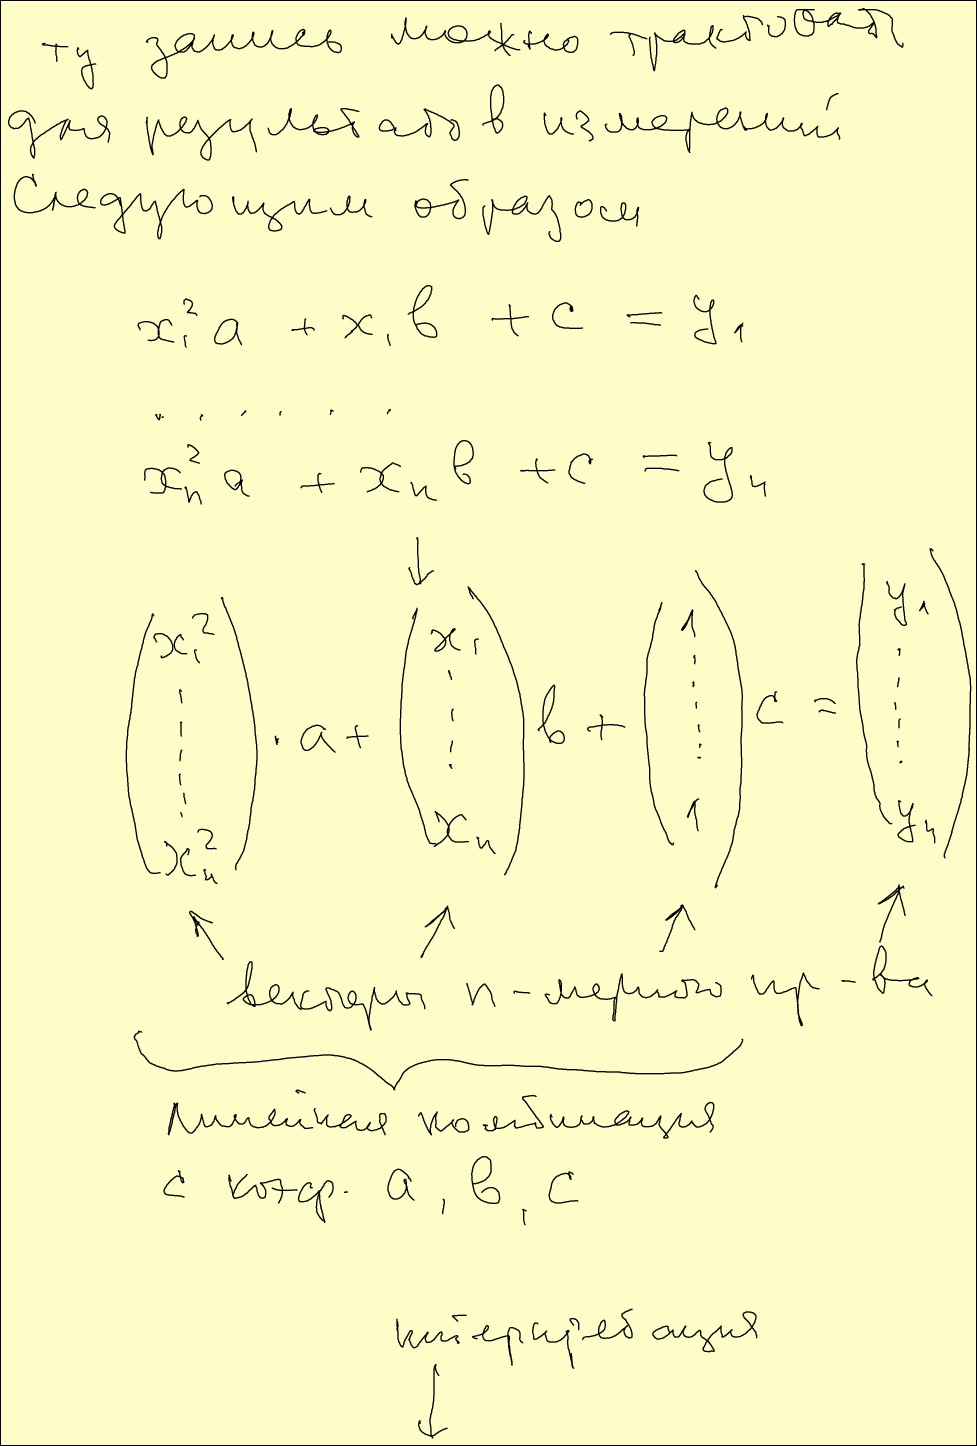 ту запись можно трактовать
для результатов измерений
следующим образом
x₁² a + x₁ b + c = y₁
. . . . . .
xₙ² a + xₙ b + c = yₙ
↓
(x₁² ⋮ xₙ²) · a + (x₁ ⋮ xₙ) b + (1 ⋮ 1) c = (y₁ ⋮ yₙ)
векторы n-мерного пр-ва
линейная комбинация
с коэф. a, b, c
интерпретация
↓